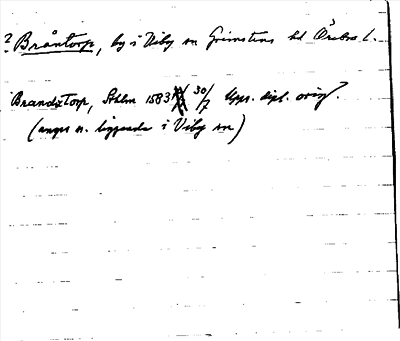 ? Bråntorp, by i Viby sn Grimstens hd Örebro l.
Brandztorp, Sthlm 1583 30/7 Upps. dipl. orig.
(anges n. liggande i Viby sn)